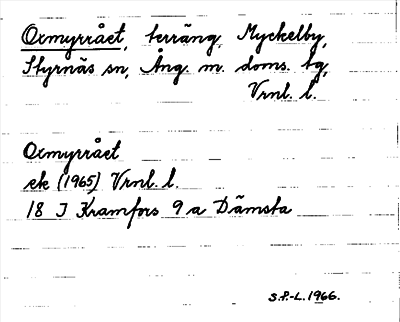 Oxmyrrået, terräng, Myckelby,
Styrnäs sn, Ång. m. doms. tg,
Vrnl. l.
Oxmyrrået
ek (1965) Vrnl. l.
18 J Kramfors 9 a Dämsta
S.P.-L. 1966.